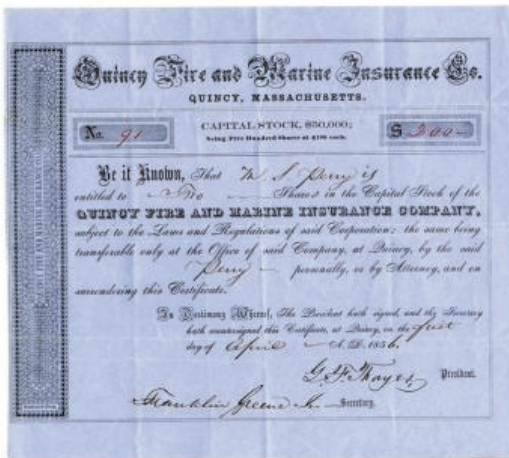 Quincy Fire and Marine Insurance Co.
QUINCY, MASSACHUSETTS.
No. 91
CAPITAL STOCK, $50,000;
being Five Hundred Shares at $100 each.
$ 200
Be it Known, That W. S. Perry is
entitled to Two Shares in the Capital Stock of the
QUINCY FIRE AND MARINE INSURANCE COMPANY,
subject to the Laws and Regulations of said Corporation; the same being
transferable only at the Office of said Company, at Quincy, by the said
Perry personally, or by Attorney, and on
surrendering this Certificate.
In Testimony Whereof, The President hath signed, and the Secretary
hath countersigned this Certificate, at Quincy, on the first
day of April A.D. 1856.
G. F. Thayer, President.
Franklin Greene Jr. Secretary.
QUINCY FIRE AND MARINE INSURANCE CO.